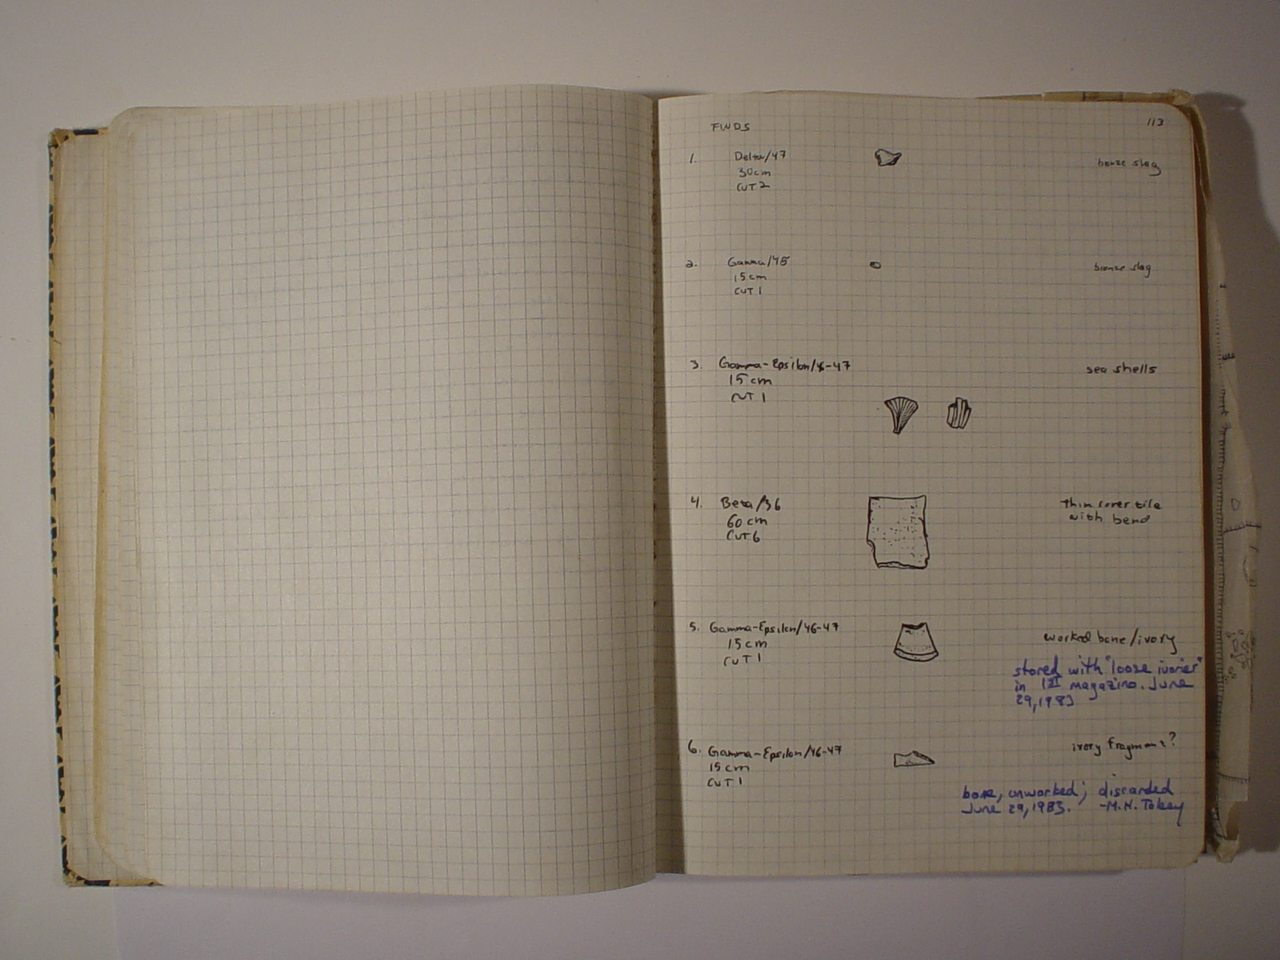 FINDS
113
1. Delta/47
30cm
CUT 2
bonze slag
2. Gamma/45
15cm
CUT 1
bronze slag
3. Gamma-Epsilon/46-47
15cm
CUT 1
sea shells
4. Beta/36
60cm
CUT 6
thin cover tile
with bend
5. Gamma-Epsilon/46-47
15cm
CUT 1
worked bone/ivory
stored with "loose ivories"
in 1st magazino. June
29, 1983
6. Gamma-Epsilon/46-47
15cm
CUT 1
ivory fragment?
bone, unworked; discarded
June 29, 1983. -M.N. Tobey